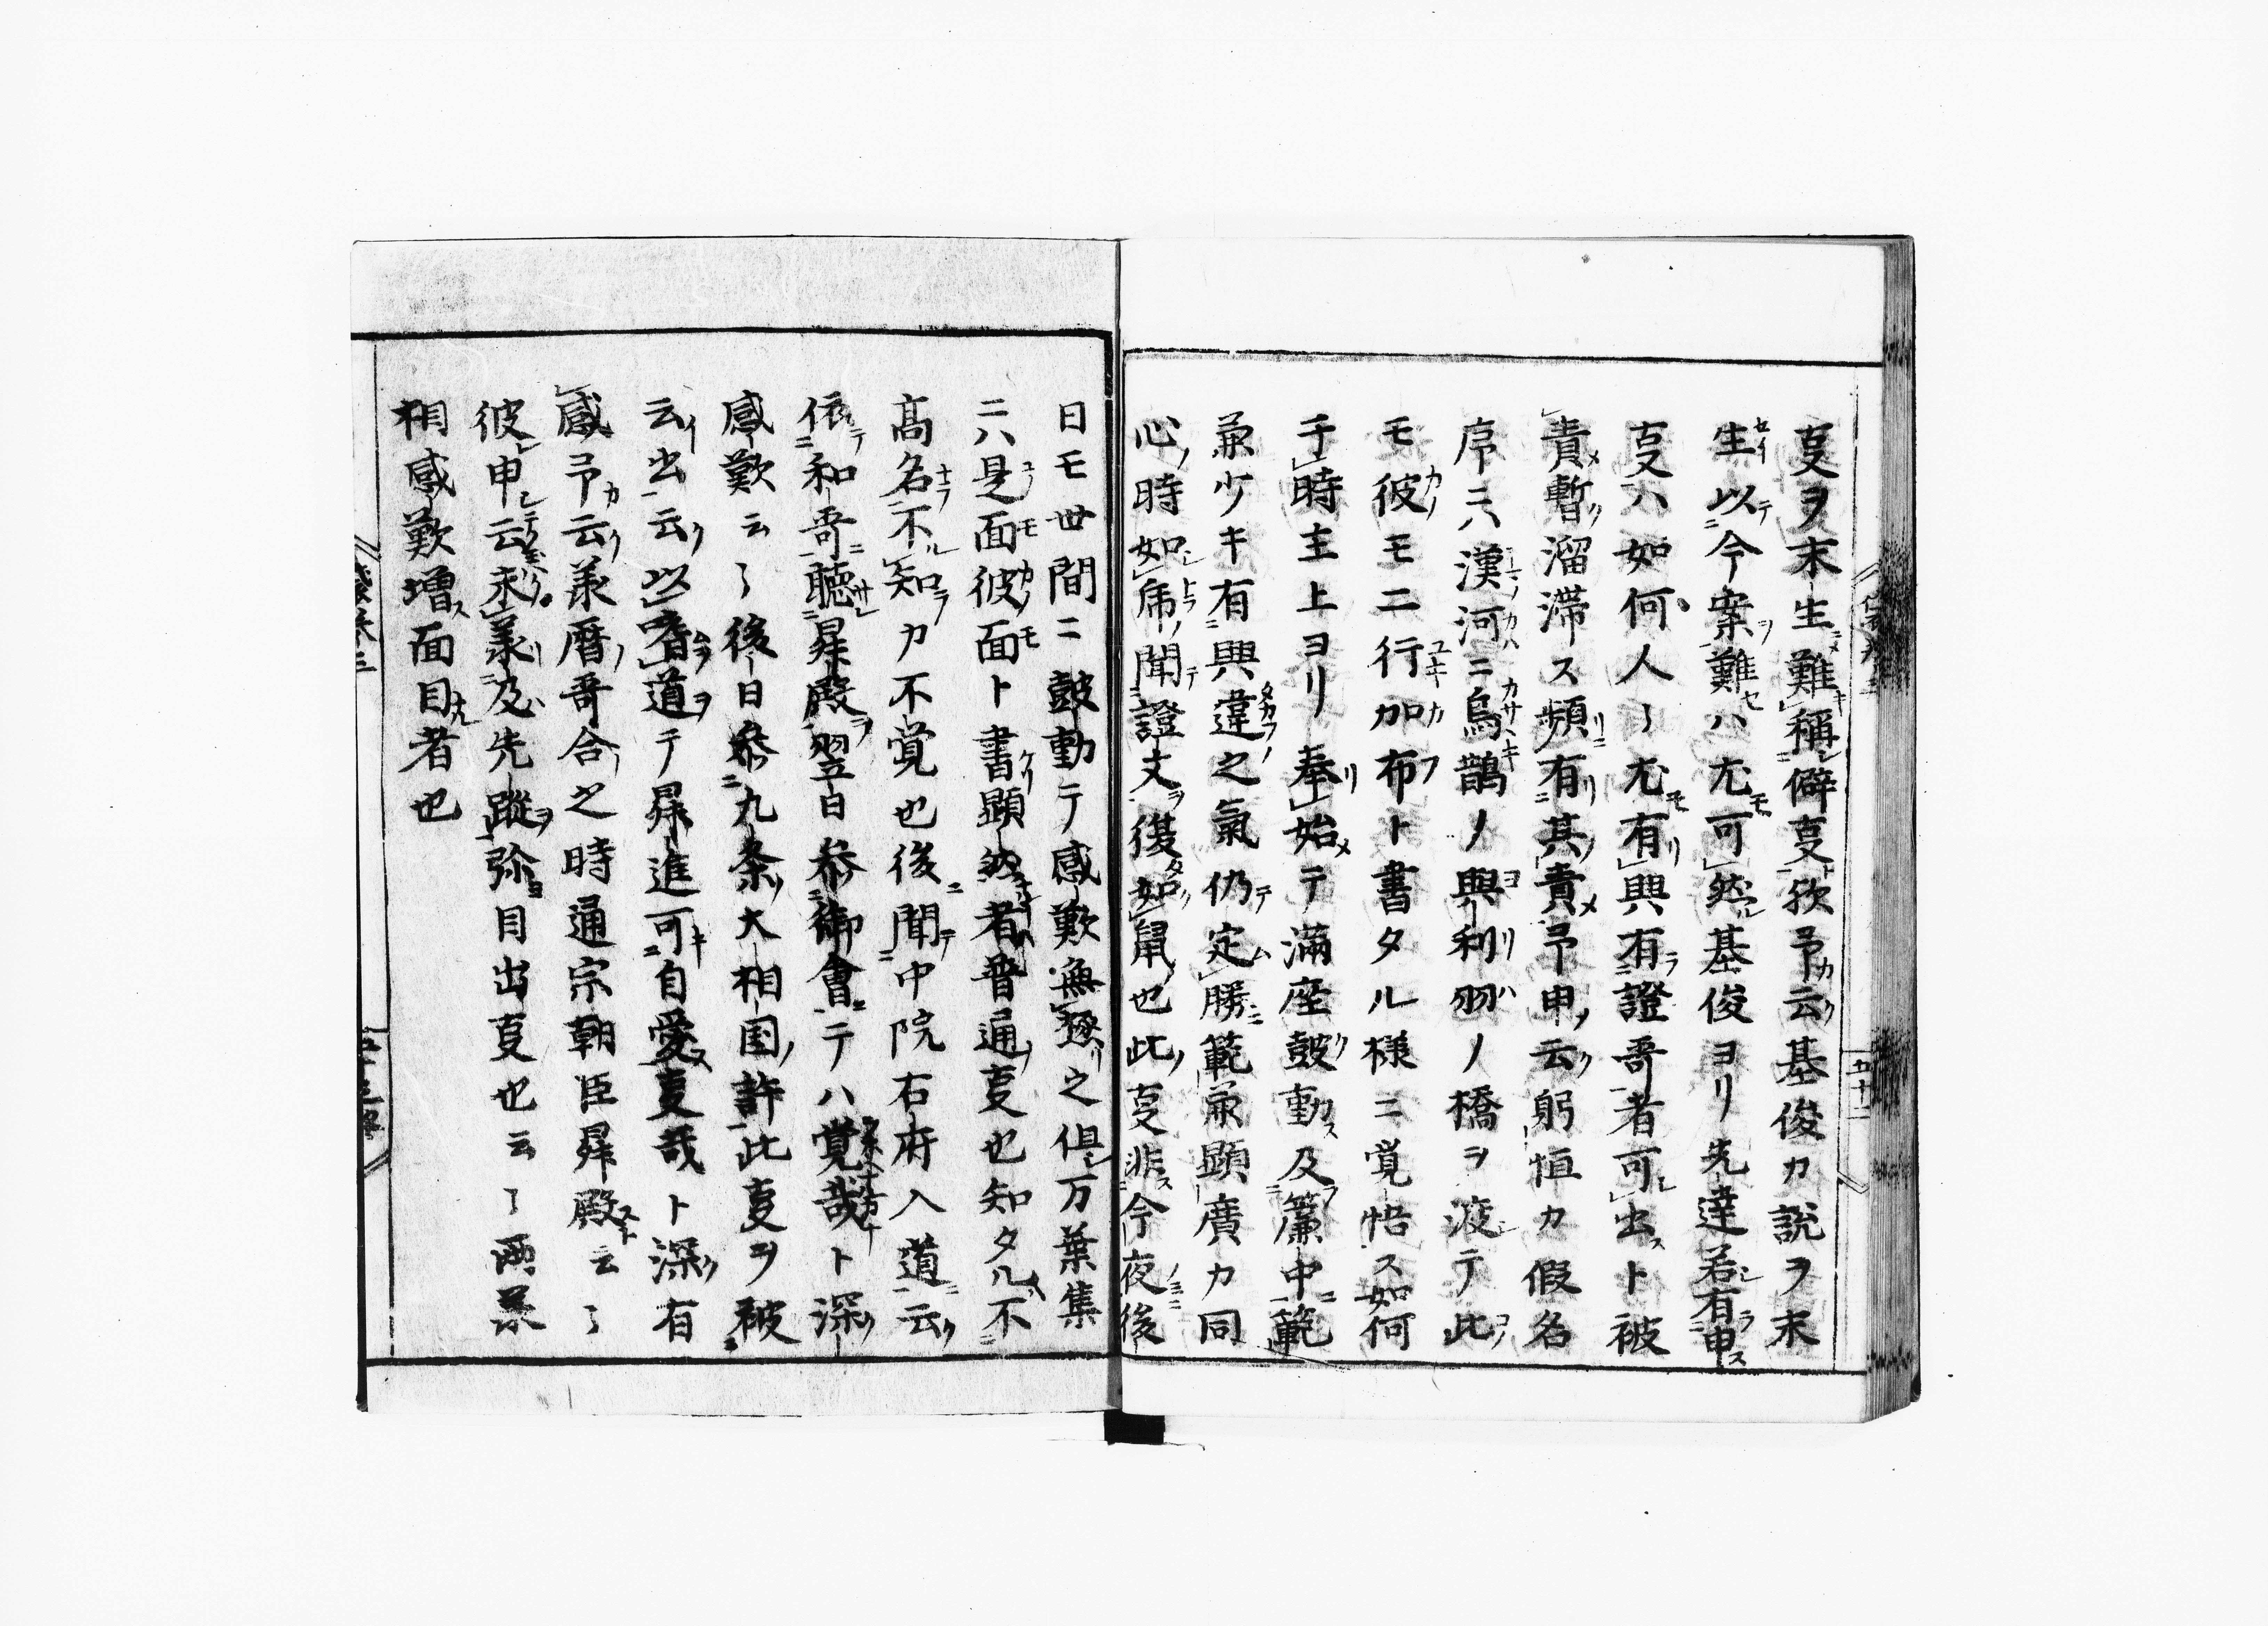 亊ヲ末生難稱僻亊欤予云基俊カ説ヲ末
生以今案難ハ尤可然基俊ヨリ先達若有申
亊ハ如何人〻尤有興有證哥者可出ト被
責暫溜滞ス頻有其責予申云躬恒カ假名
序ニハ漢河ニ烏鵲ノ與利羽ノ橋ヲ渡テ此
モ彼モニ行加布ト書タル様ニ覚悟ス如何
于時主上ヨリ奉始テ満座皷動及簾中範
兼少キ有興違之氣仍定勝範兼顕廣カ同
心時如乕聞證文後如鼠也此亊非今夜後
日モ世間ニ皷動テ感歎無極之但万葉集
ニハ是面彼面ト書顕然者普通亊也知タル不
髙名不知カ不覚也後聞中院右府入道云
依和哥聴昇殿翌日参御會テハ覚哉ト深
感歎云〻後日参九条大相国許此亊ヲ被
云出云以嗜道テ昇進可自愛亊哉ト深有
感予云義暦哥合之時通宗朝臣昇殿云〻
彼申云永義及先蹤弥目出亊也云〻兩
相感歎増面目者也
五十二